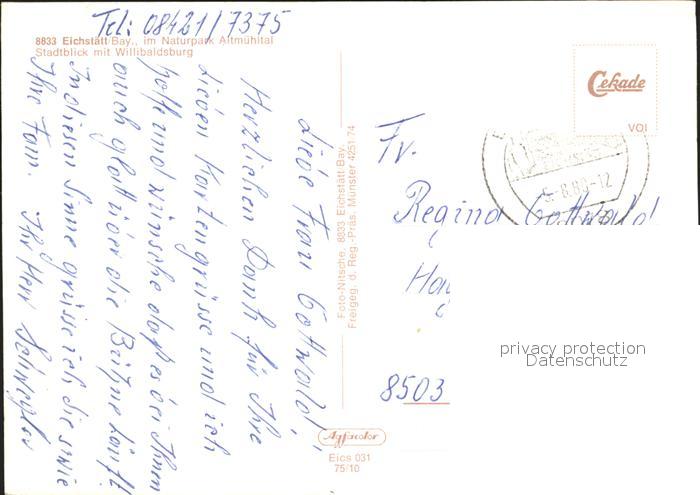 Tel: 08421/7375
8833 Eichstätt/Bay., im Naturpark Altmühltal
Stadtblick mit Willibaldsburg
Liebe Frau Gottwald!
Herzlichen Dank für Ihre
Lieben Kartengrüsse und ich
hoffe und wünsche daß es bei Ihnen
auch glatt über die Bühne läuft
In diesem Sinne grüsse ich, die sowie
Ihre Fam. Ihr Herr
Foto-Nitsche, 8833 Eichstätt/Bay.
Freigeg. d. Reg.-Präs. Münster 4251/74
Cekade
VOI
5.-8.80-12
Fr.
Regina Gottwald
8503
privacy protection
Datenschutz
Agfacolor
Eics 031
75/10